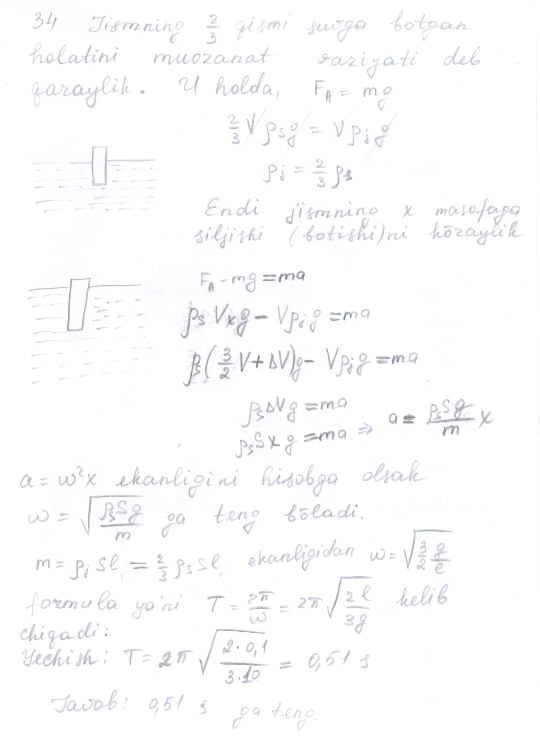 34 Jismning 2/3 qismi suvga botgan
holatini muozanat vaziyati deb
qaraylik. U holda, F_A = mg
2/3 Vρ_s g = Vρ_j g
ρ_j = 2/3 ρ_s
Endi jismning x masofaga
siljishi (botishi)ni kōraylik
F_A - mg = ma
ρ_s V_x g - Vρ_j g = ma
ρ_s(3/2 V + ΔV)g - Vρ_j g = ma
ρ_s ΔVg = ma
ρ_s S x g = ma ⇒ a = ρ_s Sg/m x
a = ω²x ekanligini hisobga olsak
ω = √(ρ_s Sg/m) ga teng bōladi.
m = ρ_j Sl = 2/3 ρ_s Sl, ekanligidan ω = √(3/2 g/l)
formula ya'ni T = 2π/ω = 2π √(2l/3g) kelib
chiqadi:
Yechish: T = 2π √(2·0,1/3·10) = 0,51 s
Javob: 0,51 s ga teng.